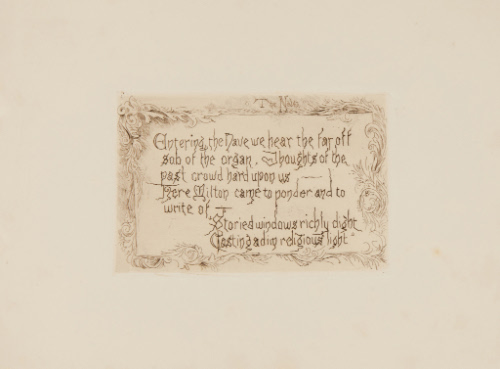 The Nave
Entering the Nave we hear the far off
sob of the organ. Thoughts of the
past crowd hard upon us
Here Milton came to ponder and to
write of
"Storied windows richly dight
Casting a dim religious light"